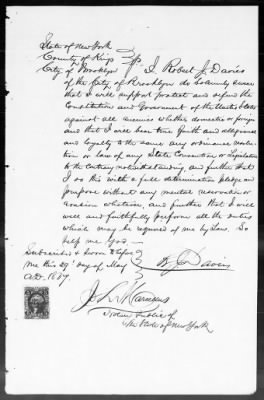 State of New York
County of Kings ss
City of Brooklyn I Robert J. Davies
of the City of Brooklyn do solemnly swear
that I will support protect and defend the
Constitution and Government of the United States
against all enemies whether domestic or foreign
and that I will bear true faith and allegiance
and loyalty to the same any ordinance resolu-
tion or law of any State Convention or Legislature
to the contrary notwithstanding and further that
I do this with a full determination pledge and
purpose without any mental reservation or
evasion whatever, and further that I will
well and faithfully perform all the duties
which may be required of me by Law. So
help me God.
Subscribed & sworn before
me this day of May R J Davies
A.D. 1867
Notary Public of
the State of New York